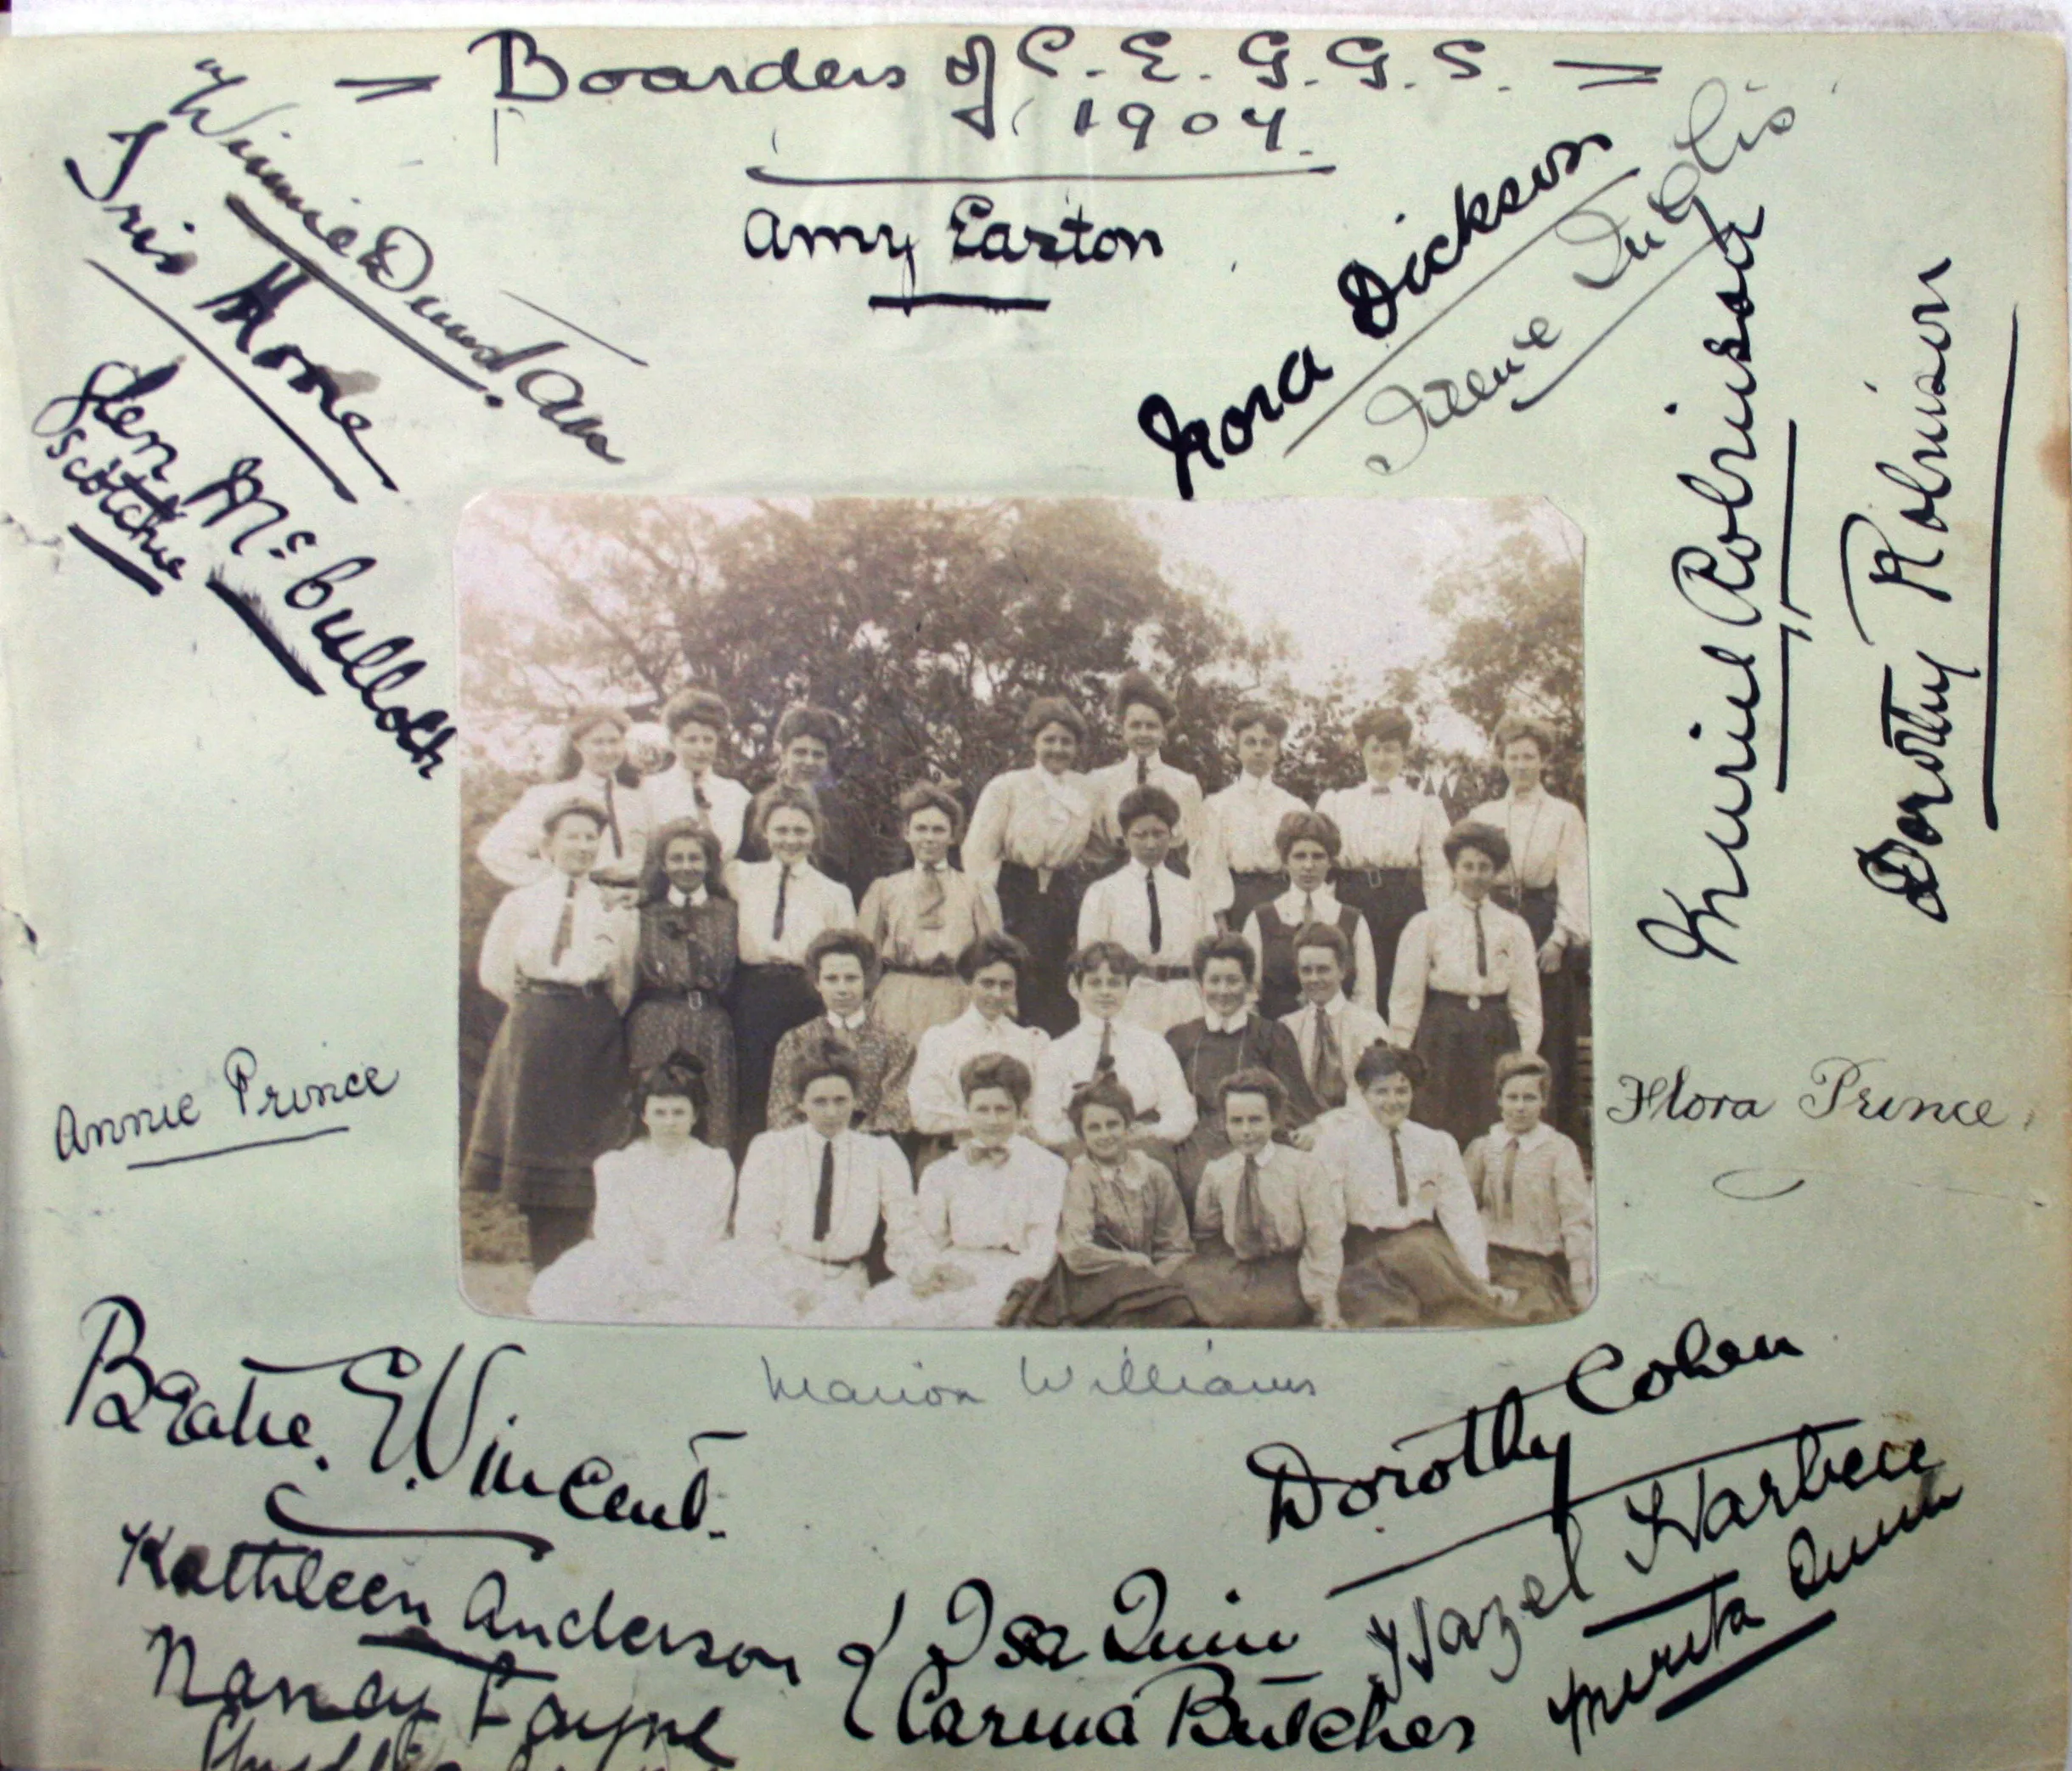 = Boarders of C. E. G. G. S. =
1904.
Amy Easton
Winnie Dunstan
Iris Moore
Jen McCulloch
Scotchie
Nora Dickson
Irene Inglis
Muriel Robinson
Dorothy Robinson
Annie Prince
Flora Prince
Marion Williams
Beatie. E. Vincent.
Kathleen Anderson
Nancy Payne
Dorothy Cohen
Hazel Harbece
Isa Quin
Carma Butcher
Merita Quin